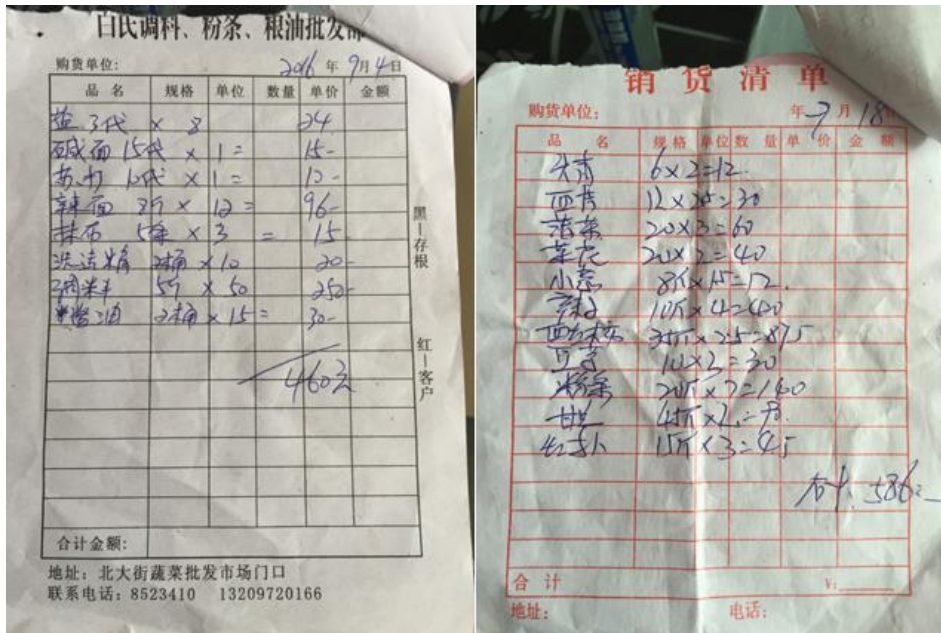 白氏调料、粉条、粮油批发部
购货单位: 2016 年 9月4日
品名 规格 单位 数量 单价 金额
盐 3代 × 8 24
碱面 15代 × 1 = 15-
苏打 10代 × 1 = 10-
辣面 8斤 × 12 = 96-
抹布 5条 × 3 = 15
洗洁精 2桶 × 10 20-
调料 5斤 × 50 250-
酱油 2桶 × 15 = 30-
460元
黑—存根
红—客户
合计金额:
地址：北大街蔬菜批发市场门口
联系电话：8523410 13209720166
销货清单
购货单位: 年 7 月 18日
品名 规格 单位 数量 单价 金额
6×2=12
12×2.5=30
20×3=60
菜花 20×2=40
8斤×1.5=12.
10斤×4=40
35斤×2.5=87.5
10×3=30
粉条 20斤×7=140
甘兰 45斤×2=90.
15斤×3=45
合计: 586元
合计 ¥:
地址: 电话: